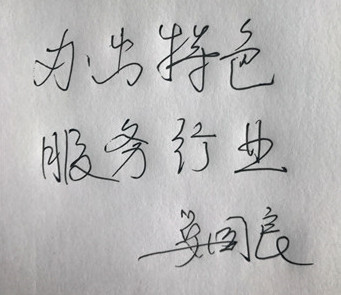 办出特色
服务行业
国良